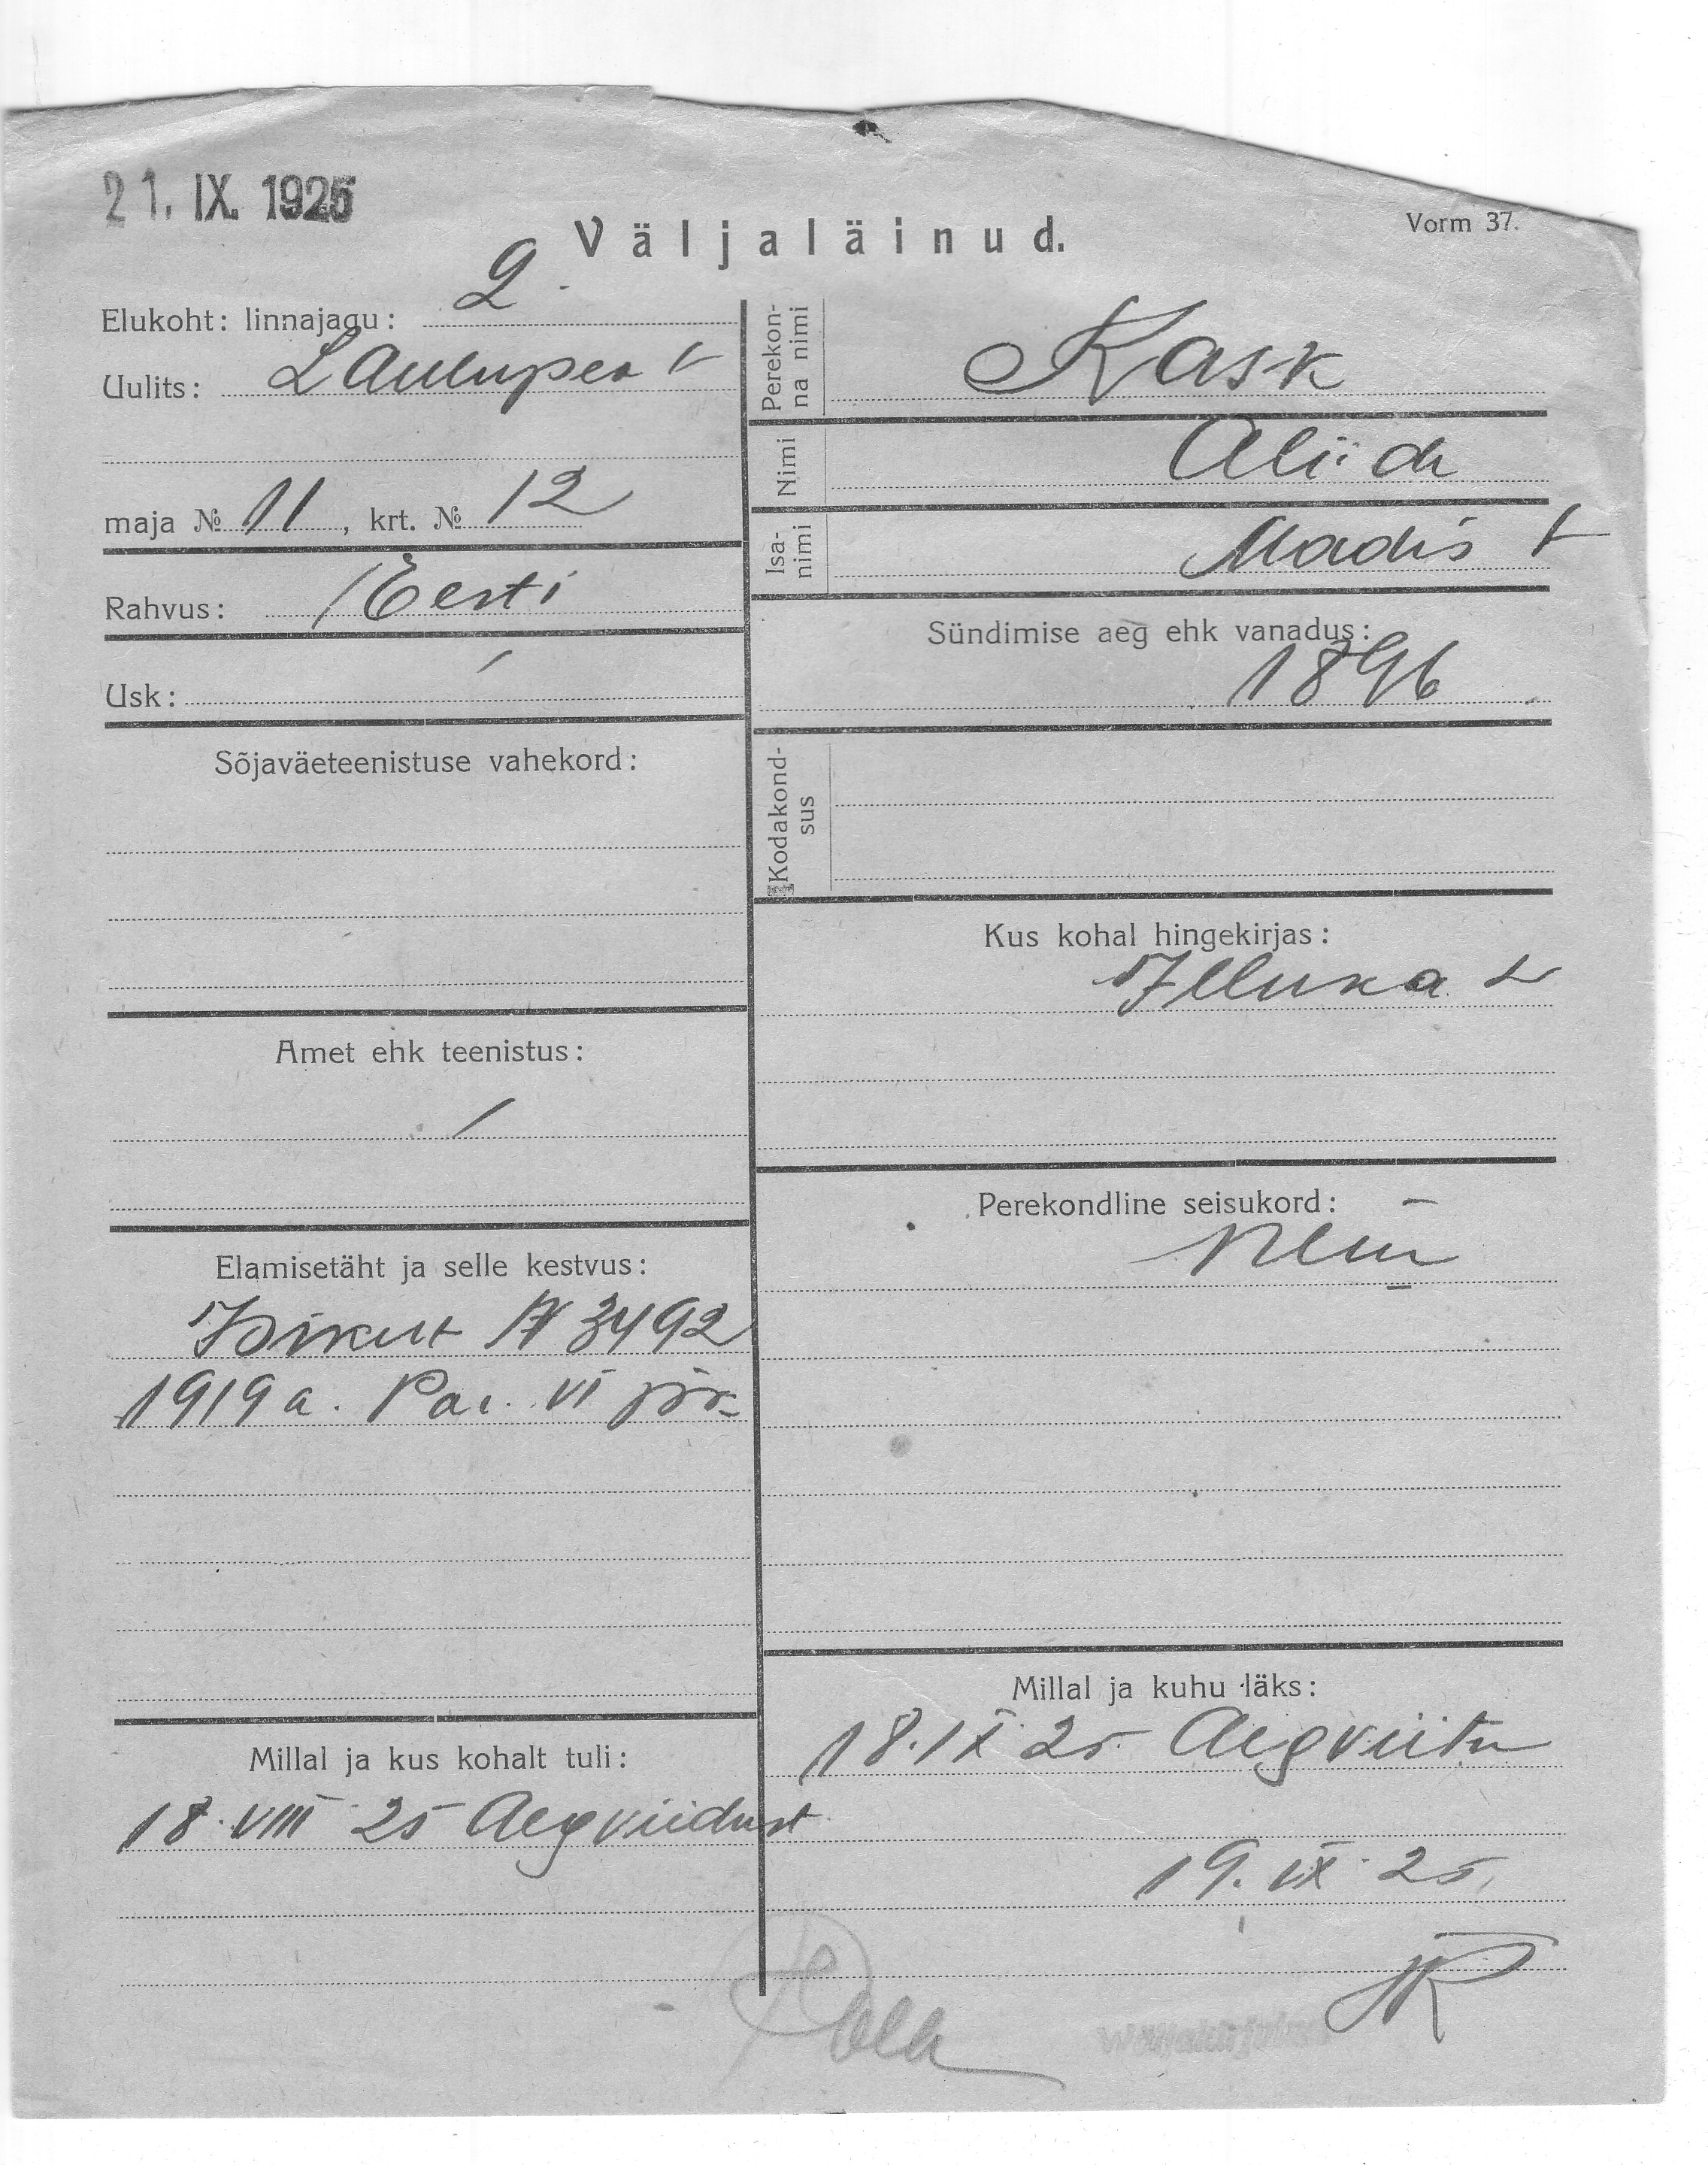 21. IX. 1925
Väljaläinud.
Vorm 37.
Elukoht: linnajagu: 2
Uulits: Laulupea t
maja № 11, krt. № 12
Rahvus: Eesti
Usk: /
Sõjaväeteenistuse vahekord:
Amet ehk teenistus:
/
Elamisetäht ja selle kestvus:
Isikut № 3492
1919 a. Pol. VI jsk.
Millal ja kus kohalt tuli:
18. VIII 25 Aegviidust
Perekonna nimi Kask
Nimi Aliide
Isanimi Madis t
Sündimise aeg ehk vanadus:
1896
Kodakondsus
Kus kohal hingekirjas:
Illuka v
Perekondline seisukord:
Millal ja kuhu läks:
18. IX 25. Aegviitu
19. IX 25.